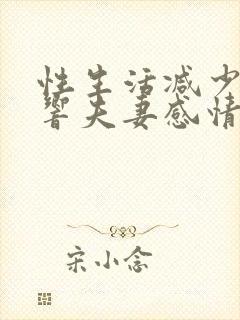 性生活减少
响夫妻感情
宋小念